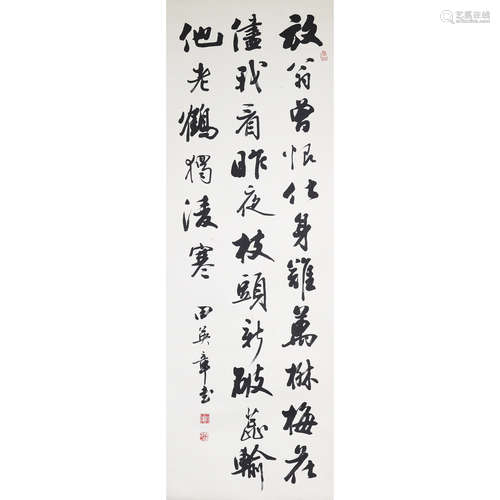 放翁曾恨化身難萬樹梅花
儘我看昨夜枝頭新破蕊輸
他老鶴獨淩寒
田英章書
艺狐在线